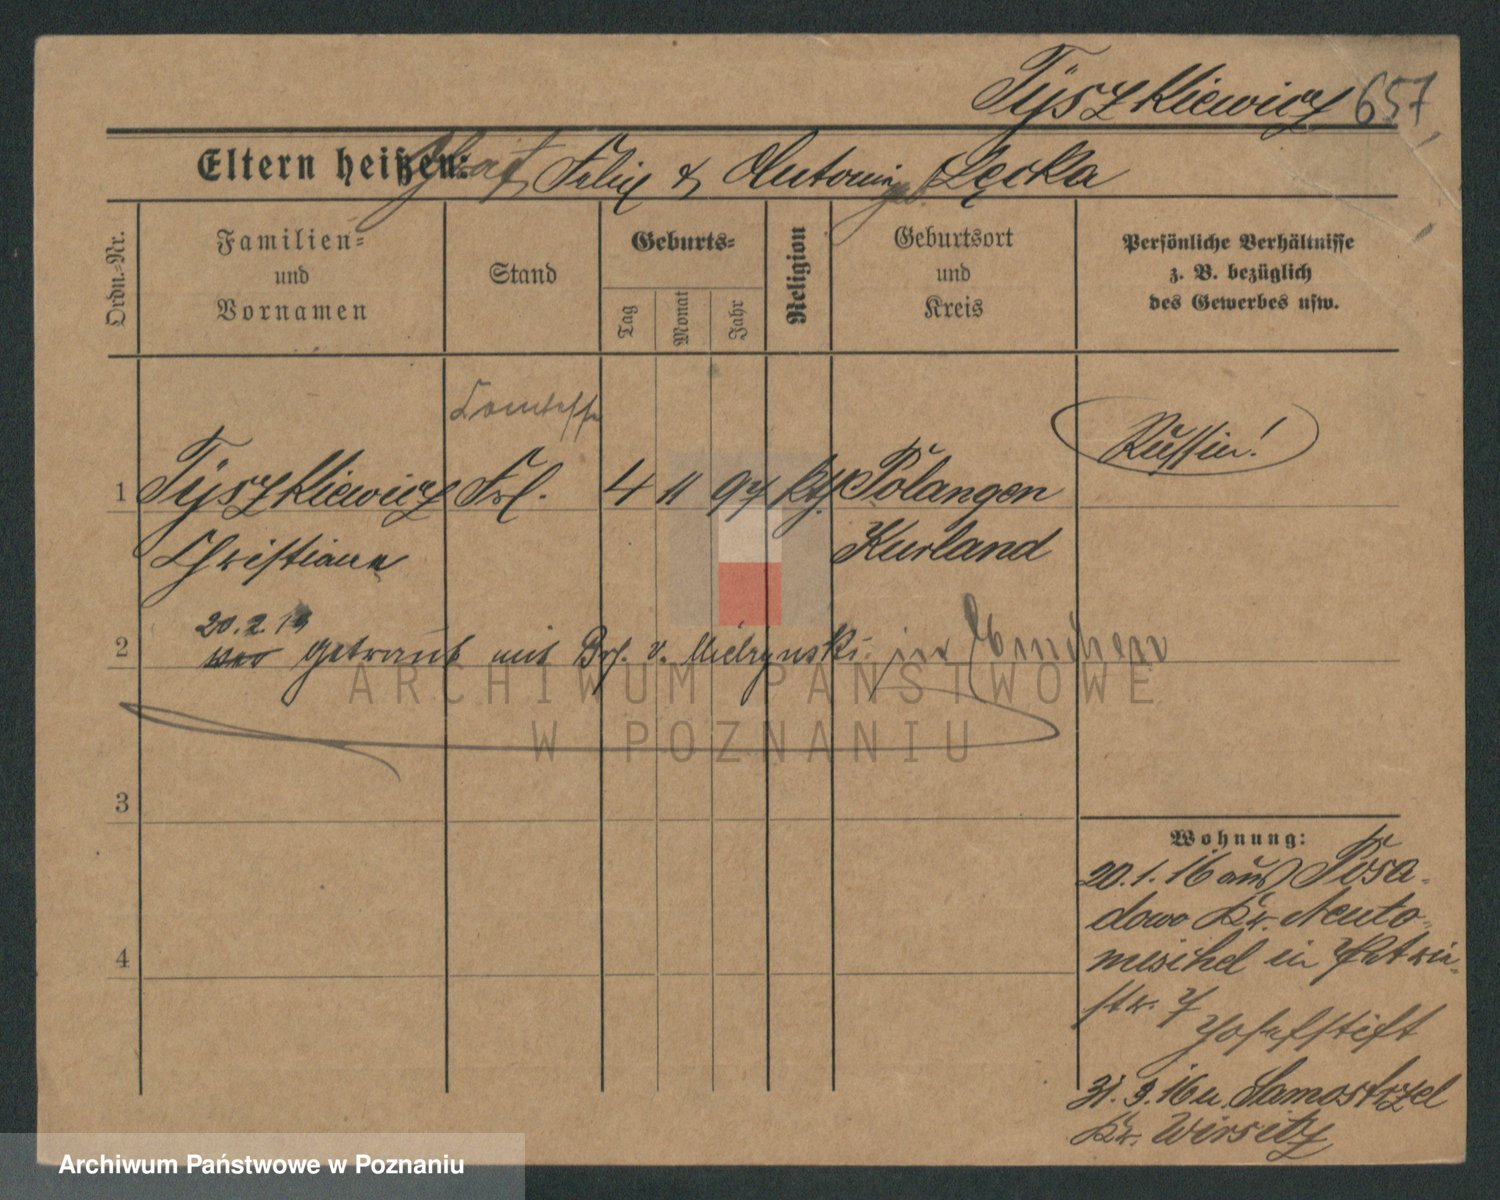 Tyszkiewicz 657
Eltern heißen: Graf Felix & Antonin geb. Łącka
Ordn.-Nr.
Familien-
und
Vornamen
Stand
Geburts-
Tag
Monat
Jahr
Religion
Geburtsort
und
Kreis
Persönliche Verhältnisse
z. B. bezüglich
des Gewerbes usw.
Comtesse
Russin!
1 Tyszkiewicz Frl. 4 11 97 kth. Polangen
Christiane Kurland
20.2.19
2 getraut mit Grf. v. Mielzynski in München
ARCHIWUM PAŃSTWOWE
W POZNANIU
3
4
Wohnung:
20.1.16 aus Posa-
dowo Kr. Neuto-
mischel in
str. 7
Josefstift
31.3.16 n. Samostrzel
Kr. Wirsitz
Archiwum Państwowe w Poznaniu